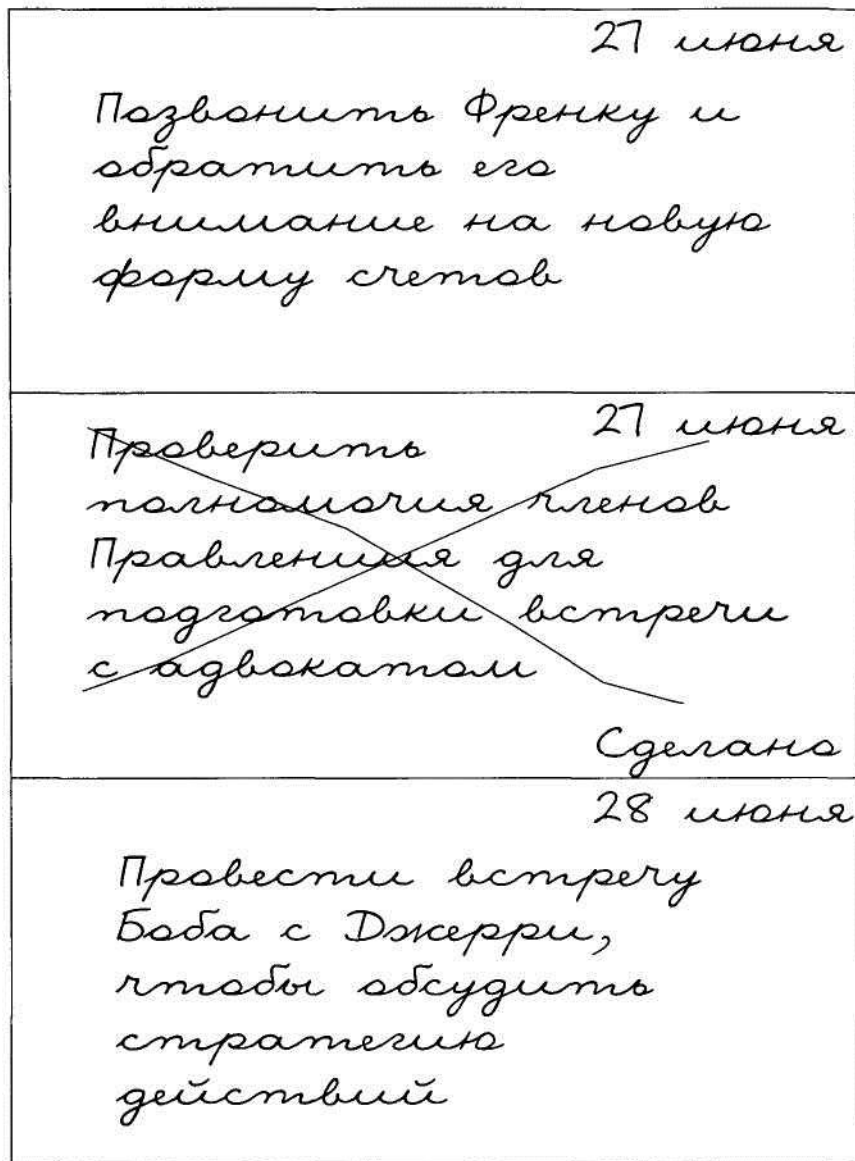 27 июня
Позвонить Френку и
обратить его
внимание на новую
форму счетов
27 июня
Проверить
полномочия членов
Правления для
подготовки встречи
с адвокатом
Сделано
28 июня
Провести встречу
Боба с Джерри,
чтобы обсудить
стратегию
действий